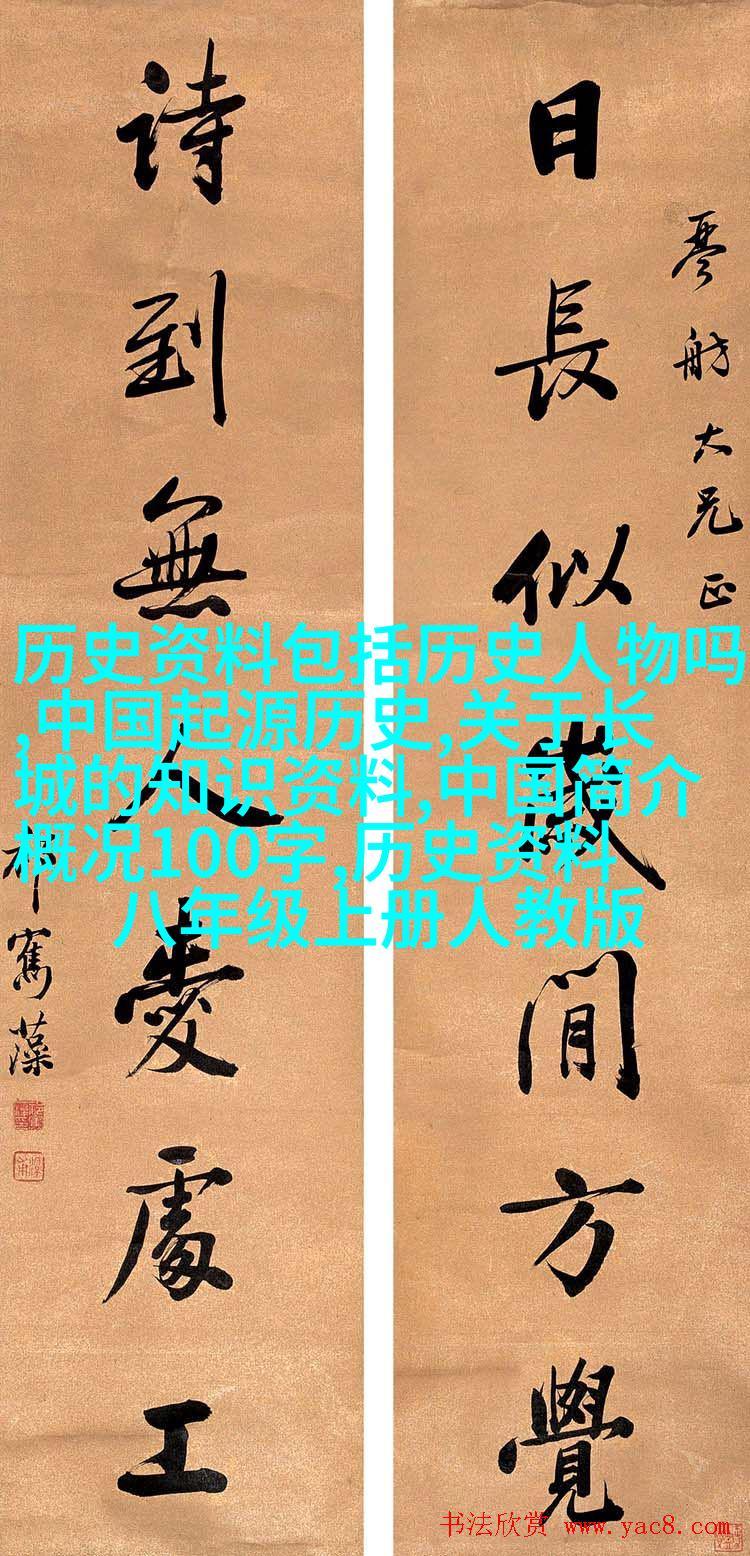 日長似歲閒方覺
琴舫大兄正
詩到無人愛處工
祁寯藻
历史资料包括历史人物吗
,中国起源历史,关于长
城的知识资料,中国简介
概况100字,历史资料
八年级上册人教版
书法欣赏 www.yac8.com